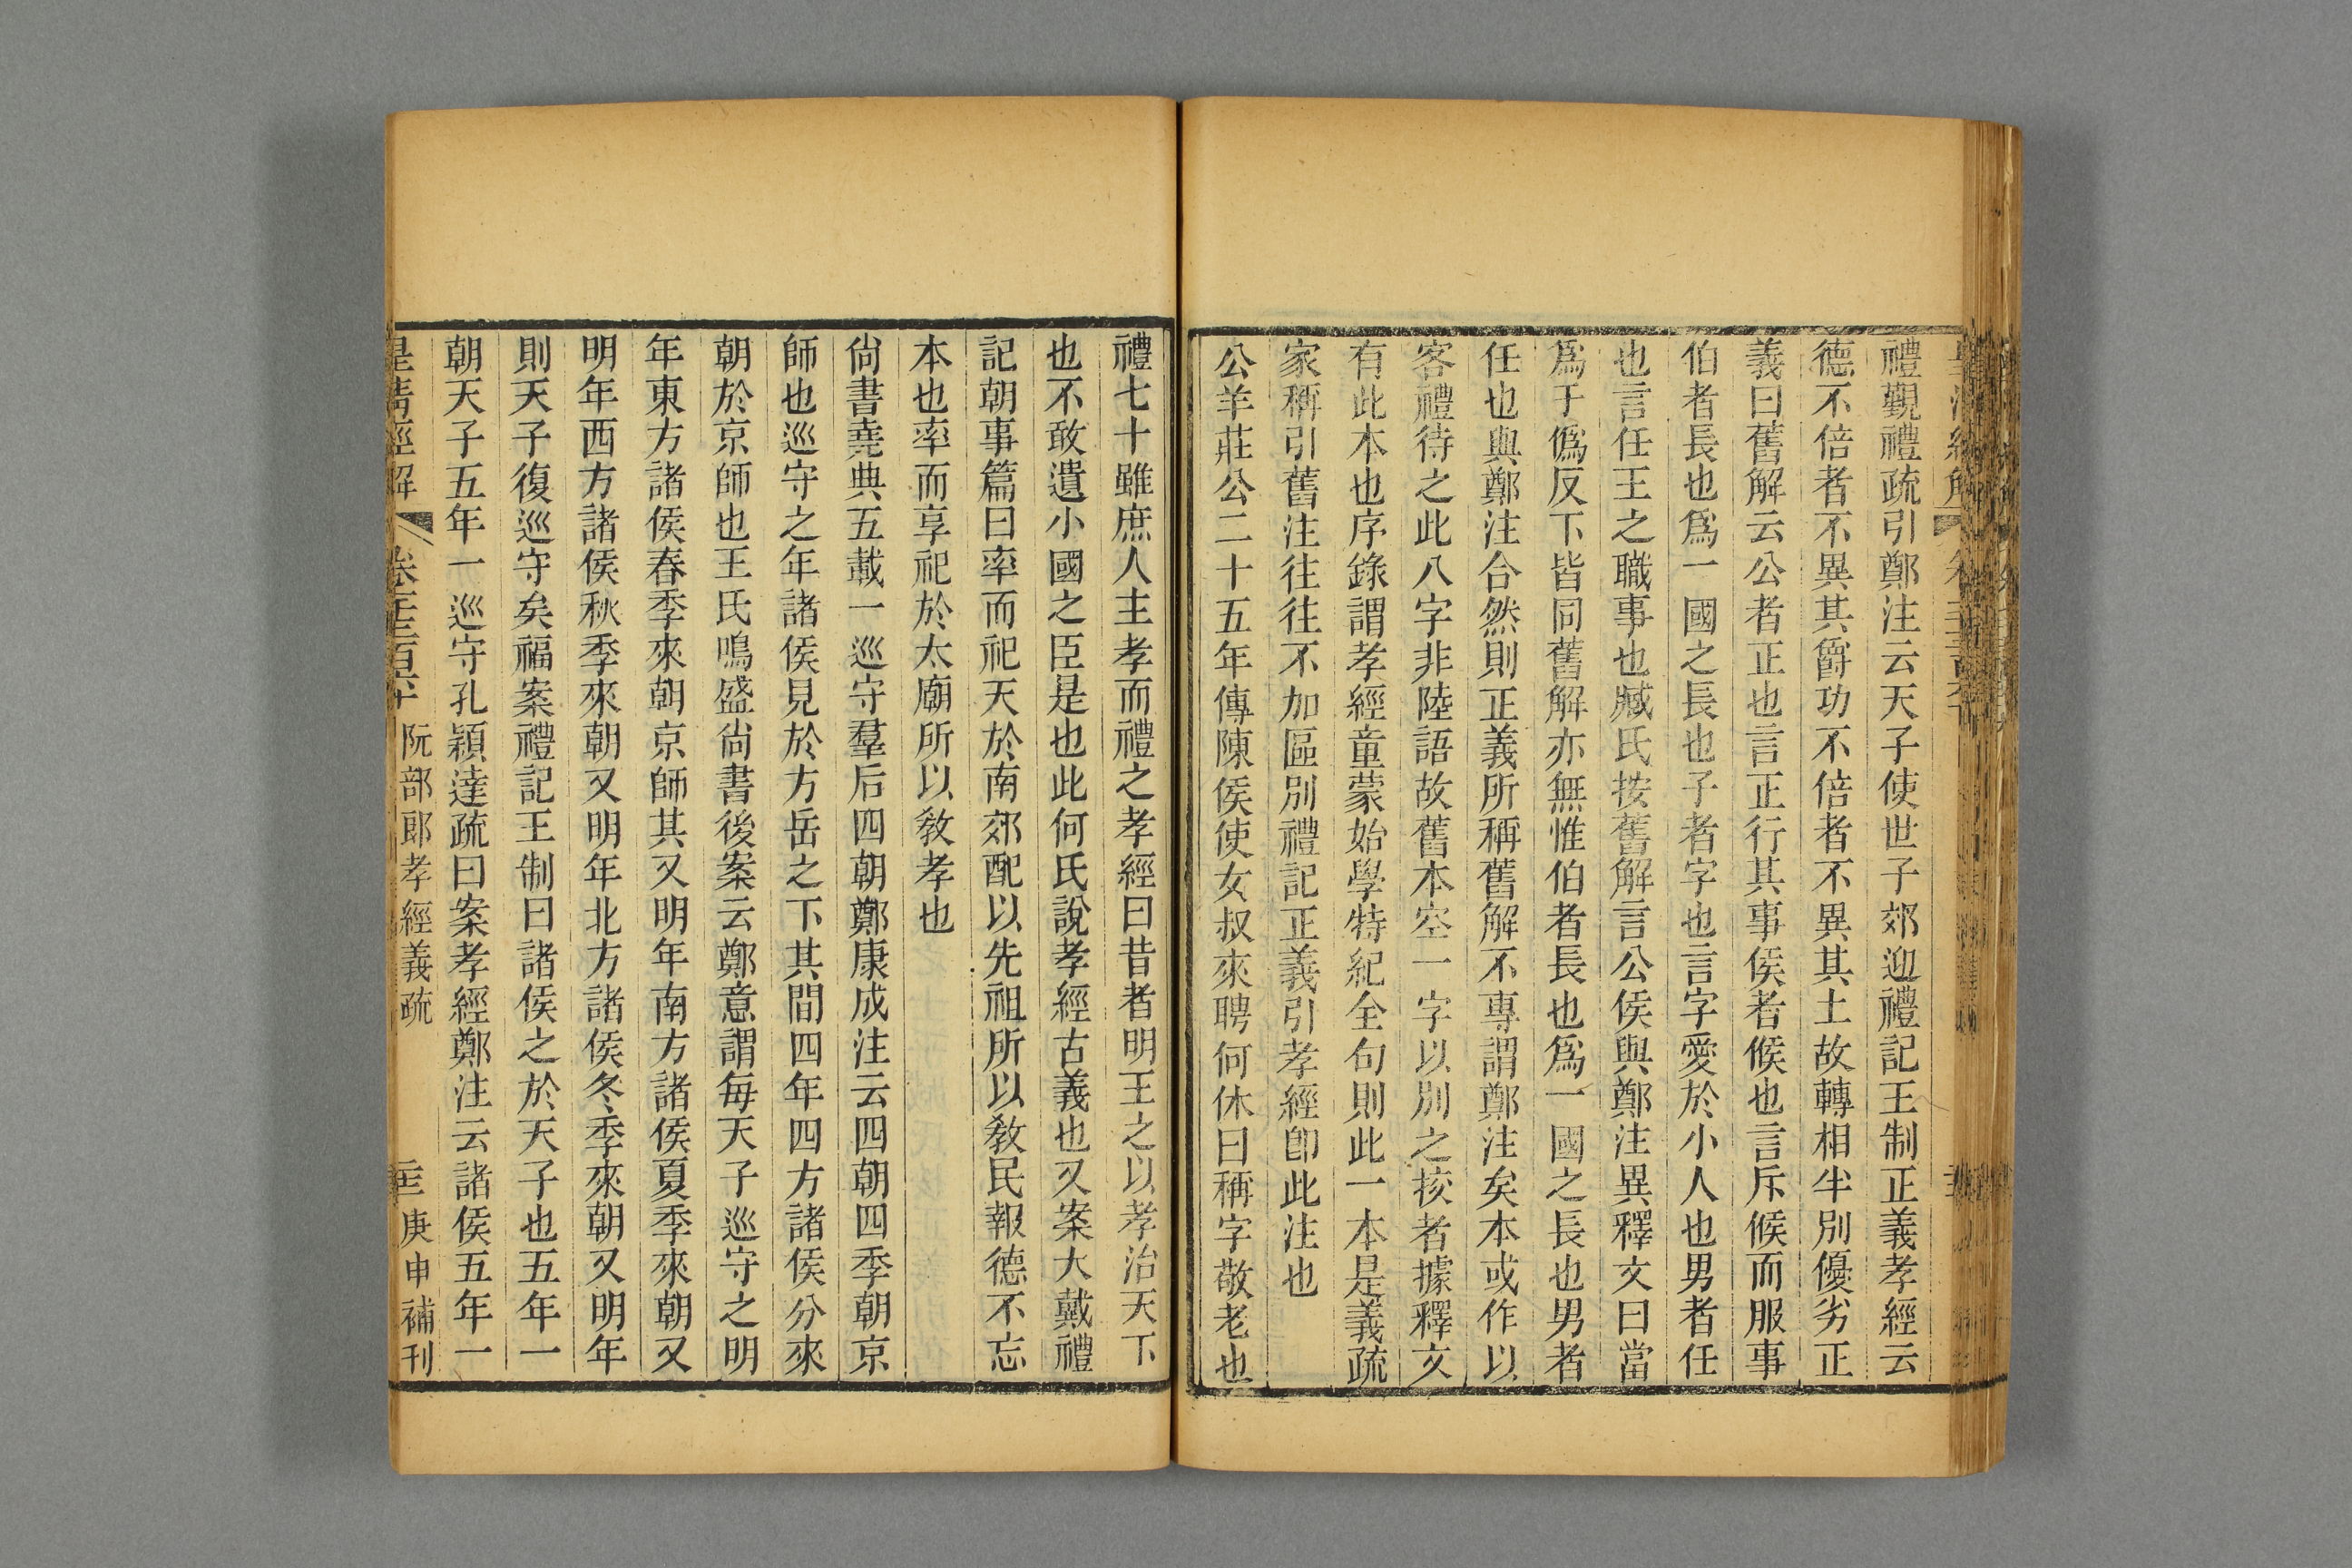 禮覲禮疏引鄭注云天子使世子郊迎禮記王制正義孝經云
德不倍者不異其爵功不倍者不異其土故轉相半別優劣正
義曰舊解云公者正也言正行其事侯者候也言斥候而服事
伯者長也爲一國之長也子者字也言字愛於小人也男者任
也言任王之職事也臧氏按舊解言公侯與鄭注異釋文曰當
爲于僞反下皆同舊解亦無惟伯者長也爲一國之長也男者
任也與鄭注合然則正義所稱舊解不專謂鄭注矣本或作以
客禮待之此八字非陸語故舊本空一字以別之挍者據釋文
有此本也序錄謂孝經童蒙始學特紀全句則此一本是義疏
家稱引舊注往往不加區別禮記正義引孝經卽此注也
公羊莊公二十五年傳陳侯使女叔來聘何休曰稱字敬老也
禮七十雖庶人主孝而禮之孝經曰昔者明王之以孝治天下
也不敢遺小國之臣是也此何氏說孝經古義也又案大戴禮
記朝事篇曰率而祀天於南郊配以先祖所以敎民報德不忘
本也率而享祀於太廟所以敎孝也
尙書堯典五載一巡守羣后四朝鄭康成注云四朝四季朝京
師也巡守之年諸侯見於方岳之下其間四年四方諸侯分來
朝於京師也王氏鳴盛尙書後案云鄭意謂每天子巡守之明
年東方諸侯春季來朝京師其又明年南方諸侯夏季來朝又
明年西方諸侯秋季來朝又明年北方諸侯冬季來朝又明年
則天子復巡守矣福案禮記王制曰諸侯之於天子也五年一
朝天子五年一巡守孔穎達疏曰案孝經鄭注云諸侯五年一
皇清經解 卷千三百六十 阮部郎孝經義疏 庚申補刊